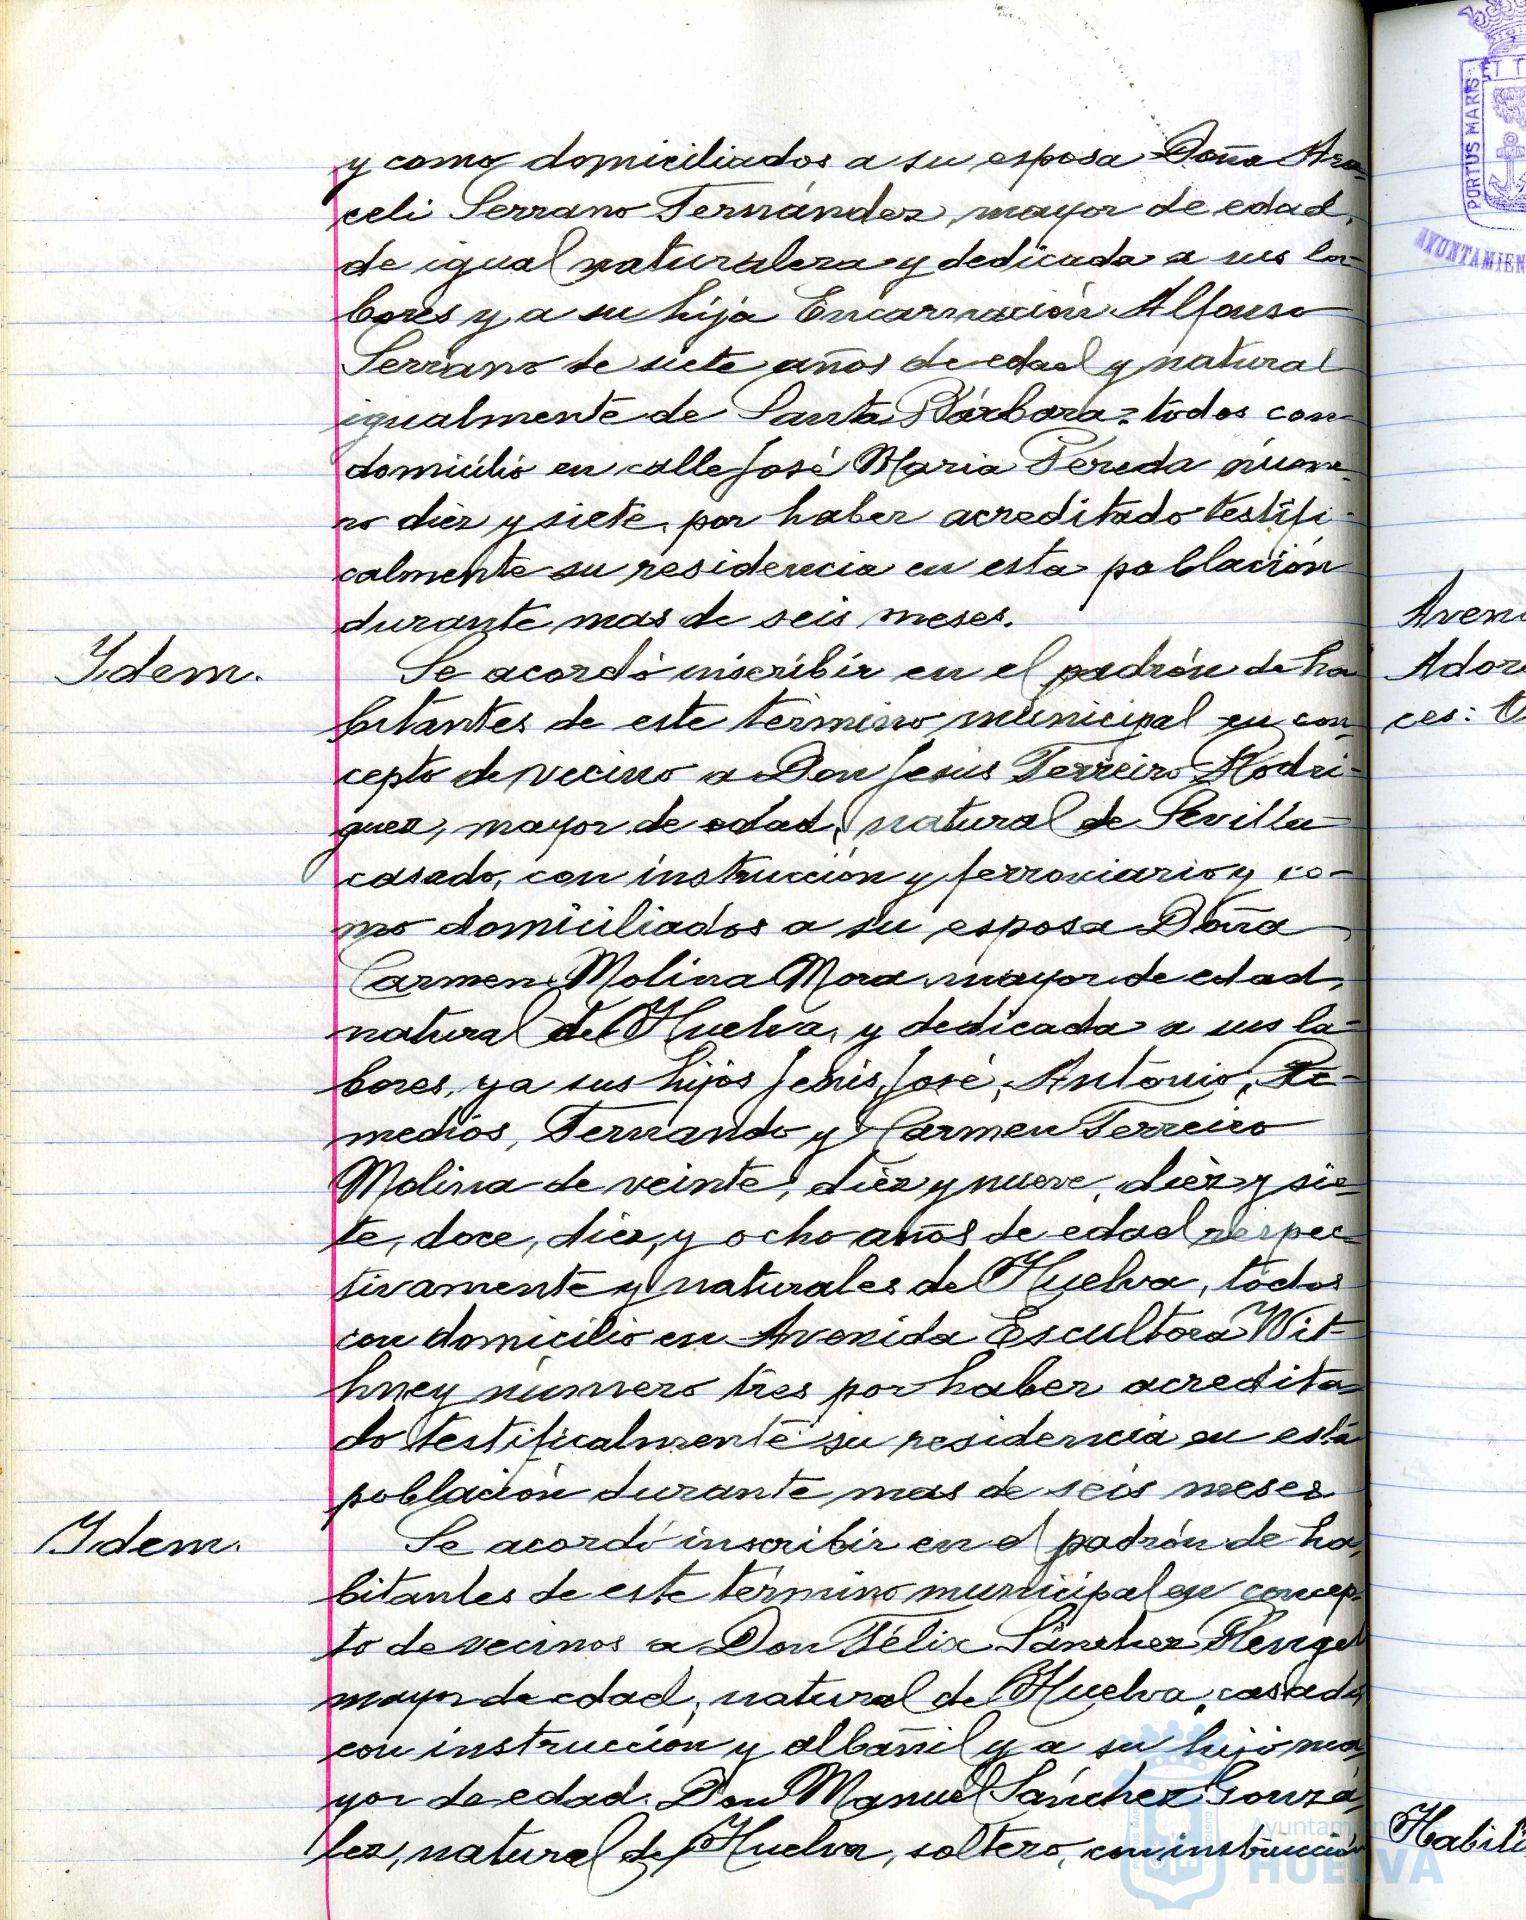 y como domiciliados a su esposa Doña Ara-
celi Serrano Fernández, mayor de edad,
de igual naturaleza y dedicada a sus la-
bores y a su hija Encarnación Alfonso
Serrano de siete años de edad y natural
igualmente de Santa Bárbara, todos con
domicilio en calle José Maria Pereda núme-
ro diez y siete, por haber acreditado testifi-
calmente su residencia en esta población
durante mas de seis meses.
Idem. Se acordó inscribir en el padrón de ha
bitantes de este término municipal en con-
cepto de vecino a Don Jesús Ferreiro Rodri-
guez, mayor de edad, natural de Sevilla
casado, con instrucción y ferroviario y co-
mo domiciliados a su esposa Doña
Carmen Molina Mora, mayor de edad,
natural de Huelva, y dedicada a sus la-
bores, y a sus hijos Jesús, José, Antonio, Re-
medios, Fernando y Carmen Ferreiro
Molina de veinte, diez y nueve, diez y sie-
te, doce, diez, y ocho años de edad respec-
tivamente y naturales de Huelva, todos
con domicilio en Avenida Escultora Wit-
hney número tres por haber acredita-
do testificalmente su residencia en esta
población durante mas de seis meses
Idem. Se acordó inscribir en el padrón de ha-
bitantes de este término municipal en concep-
to de vecinos a Don Félix Sánchez Rengel
mayor de edad, natural de Huelva, casado,
con instrucción y albañil y a su hijo ma-
yor de edad. Don Manuel Sánchez Gonzá-
lez, natural de Huelva, soltero, con instrucción
PORTUS MARIS
ET T
AYUNTAMIEN
Aveni
Ador
ces:
Habili
Ayuntamiento de
HUELVA